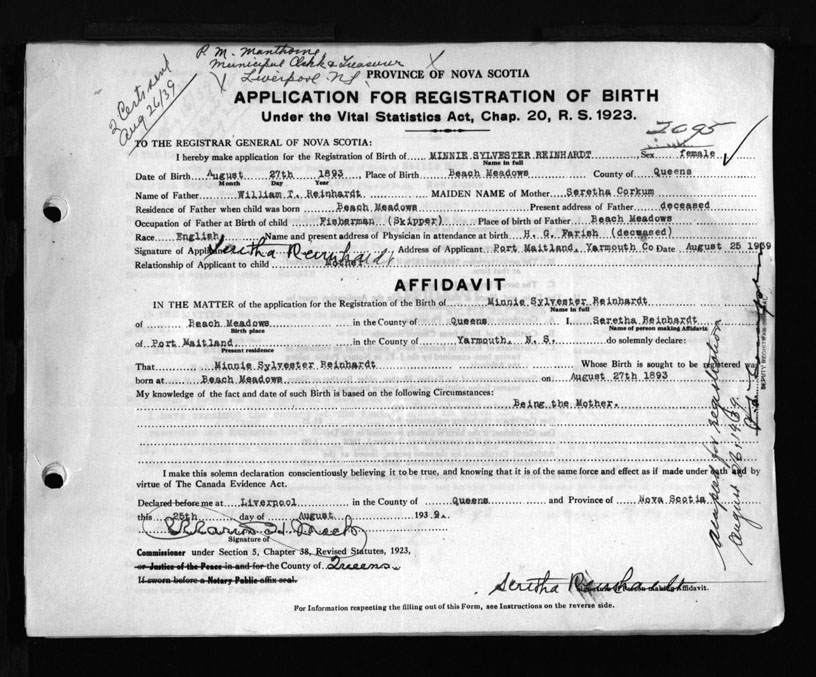 P. M. Manthorne
Municipal Clerk & Treasurer
Liverpool NS
2 Certs sent
Aug 26/39
PROVINCE OF NOVA SCOTIA
APPLICATION FOR REGISTRATION OF BIRTH
Under the Vital Statistics Act, Chap. 20, R. S. 1923.
2095
TO THE REGISTRAR GENERAL OF NOVA SCOTIA:
I hereby make application for the Registration of Birth of MINNIE SYLVESTER REINHARDT Sex female
Name in full
Date of Birth August 27th 1893 Place of Birth Beach Meadows County of Queens
Month Day Year
Name of Father William T. Reinhardt MAIDEN NAME of Mother Seretha Corkum
Residence of Father when child was born Beach Meadows Present address of Father deceased
Occupation of Father at Birth of child Fisherman (Skipper) Place of birth of Father Beach Meadows
Race English Name and present address of Physician in attendance at birth H. G. Farish (deceased)
Signature of Applicant Seretha Reinhardt Address of Applicant Port Maitland, Yarmouth Co Date August 25 1939
Relationship of Applicant to child Mother
AFFIDAVIT
IN THE MATTER of the application for the Registration of the Birth of Minnie Sylvester Reinhardt
Name in full
of Beach Meadows in the County of Queens I, Seretha Reinhardt
Birth place Name of person making Affidavit
of Port Maitland in the County of Yarmouth, N. S. do solemnly declare:
Present residence
That Minnie Sylvester Reinhardt Whose Birth is sought to be registered was
born at Beach Meadows on August 27th 1893
My knowledge of the fact and date of such Birth is based on the following Circumstances:
Being the Mother.
I make this solemn declaration conscientiously believing it to be true, and knowing that it is of the same force and effect as if made under oath and by
virtue of The Canada Evidence Act.
Declared before me at Liverpool in the County of Queens and Province of Nova Scotia
this 25th day of August 1939.
Signature of
Commissioner under Section 5, Chapter 38, Revised Statutes, 1923,
or Justice of the Peace in and for the County of Queens.
If sworn before a Notary Public affix seal.
Seretha Reinhardt
Signature of Person making Affidavit.
For Information respecting the filling out of this Form, see Instructions on the reverse side.
accepted for registration
August 26 1939.
DEPUTY REGISTRAR